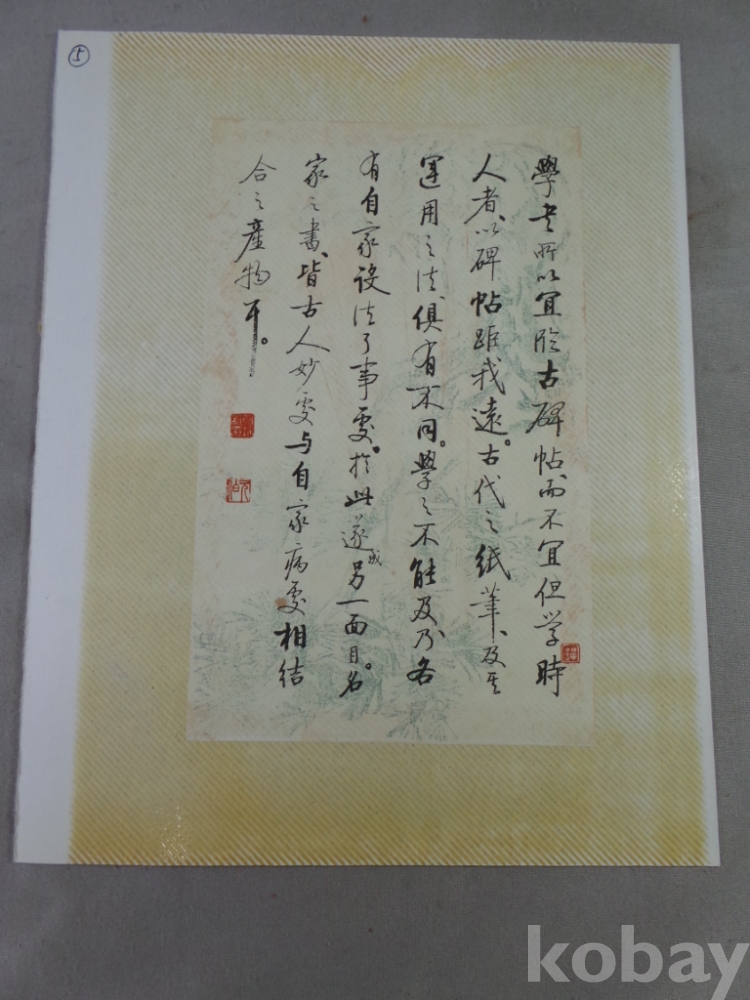 ⑤
學書所以宜臨古碑帖而不宜但学時
人者、以碑帖距我遠。古代之紙筆、及其
運用之法、俱有不同。學之不能及、乃各
有自家設法了事處。於此遂成另一面目。名
家之書、皆古人妙處与自家病處相結
合之產物耳。
kobay